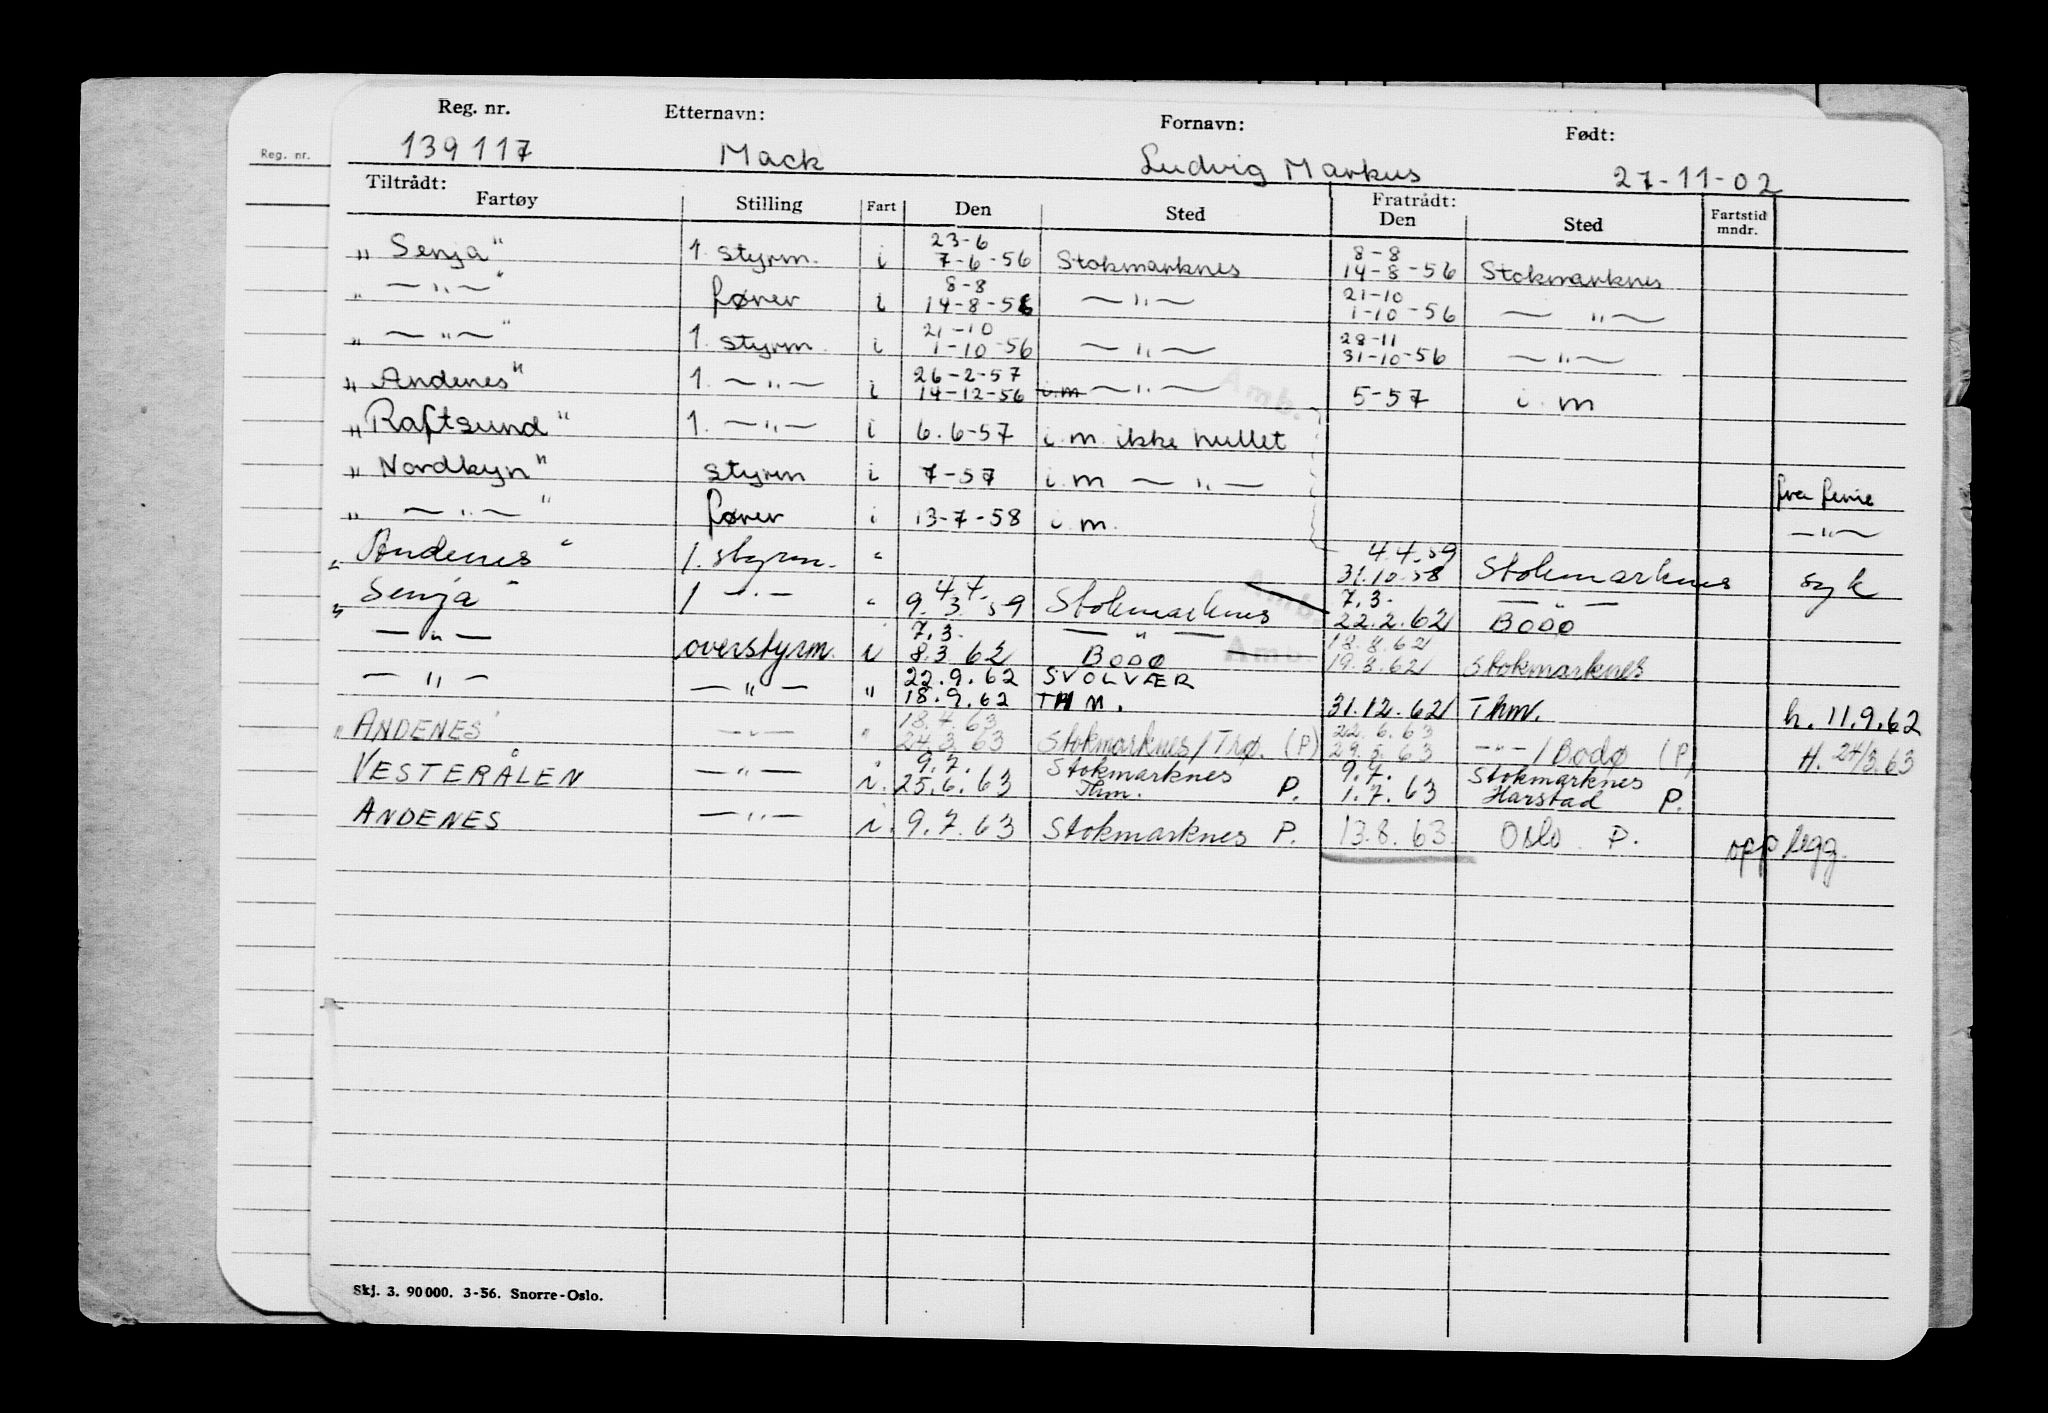 Reg. nr. Etternavn: Fornavn: Født:
Reg. nr. 139117 Mack Ludvig Markus 27-11-02
Tiltrådt: Fratrådt:
Fartøy Stilling Fart Den Sted Den Sted Fartstid mndr.
23-6 8-8
„Senja" 1. styrm. i 7-6-56 Stokmarknes 14-8-56 Stokmarknes
8-8 21-10
„ — „ — " fører i 14-8-56 — „ — 1-10-56 — „ —
21-10 28-11
„ — „ — " 1. styrm. i 1-10-56 — „ — 31-10-56 — „ —
26-2-57
„Andenes" 1. — „ — i 14-12-56 i.m — „ — Amb. 5-57 i. m
„Raftsund" 1. — „ — i 6.6-57 i. m. ikke hullet
„Nordkyn" styrm i 7-57 i. m — „ — fra ferie
„ — „ — " fører i 13-7-58 i. m. — „ —
4.4.59
„Andenes" 1. styrm. " 31.10.58 Stokmarknes syk
4.4. 7.3.
„Senja" 1 — " — " 9.3.59 Stokmarknes Amb. 22.2.62 — „ — BODØ
7.3. 18.8.62
— " — overstyrm. i 8.3.62 — " — BODØ Amb. 19.8.62 Stokmarknes
22.9.62 SVOLVÆR
— „ — — „ — " 18.9.62 THM. 31.12.62 Thm. h. 11.9.62
18.4.63 22.6.63
„ANDENES" — „ — " 24.3.63 Stokmarknes/Trø. (P) 29.5.63 — „ — / Bodø (P) H. 24/3.63
9.7. Stokmarknes 9.7. Stokmarknes
VESTERÅLEN — „ — i. 25.6.63 Thm. P. 1.7.63 Harstad P.
ANDENES — „ — i. 9.7.63 Stokmarknes P. 13.8.63 Oslo P. opplegg.
Skj. 3. 90000. 3-56. Snorre-Oslo.